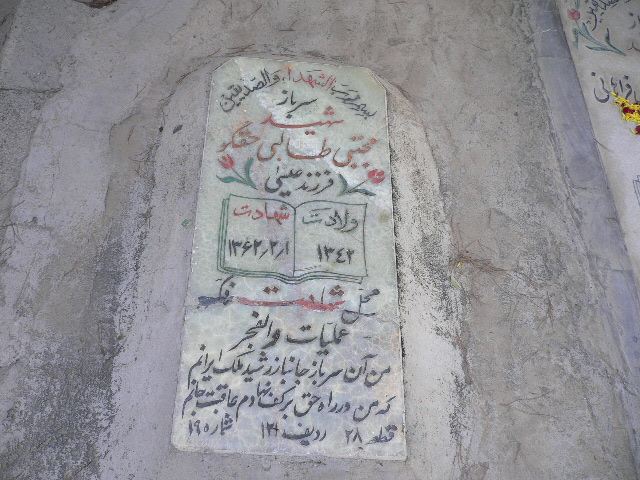 بسم رب الشهداء والصدیقین
سرباز
شهید
مجتبی طالبی حقگو
فرزند عیسی
ولادت
۱۳۴۲
شهادت
۱۳۶۲٫۲٫۱
محل شهادت فکه
عملیات والفجر
من آن سرباز جانباز رشید ملک ایرانم
که من در راه حق برکف نهادم عاقبت جانم
قطعه ۲۸ ردیف ۱۳۱ شماره ۱۹